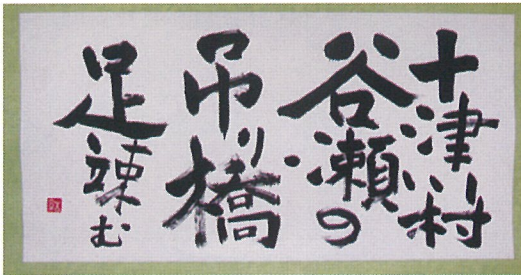 十津川村
谷瀬の
吊り橋
足竦む